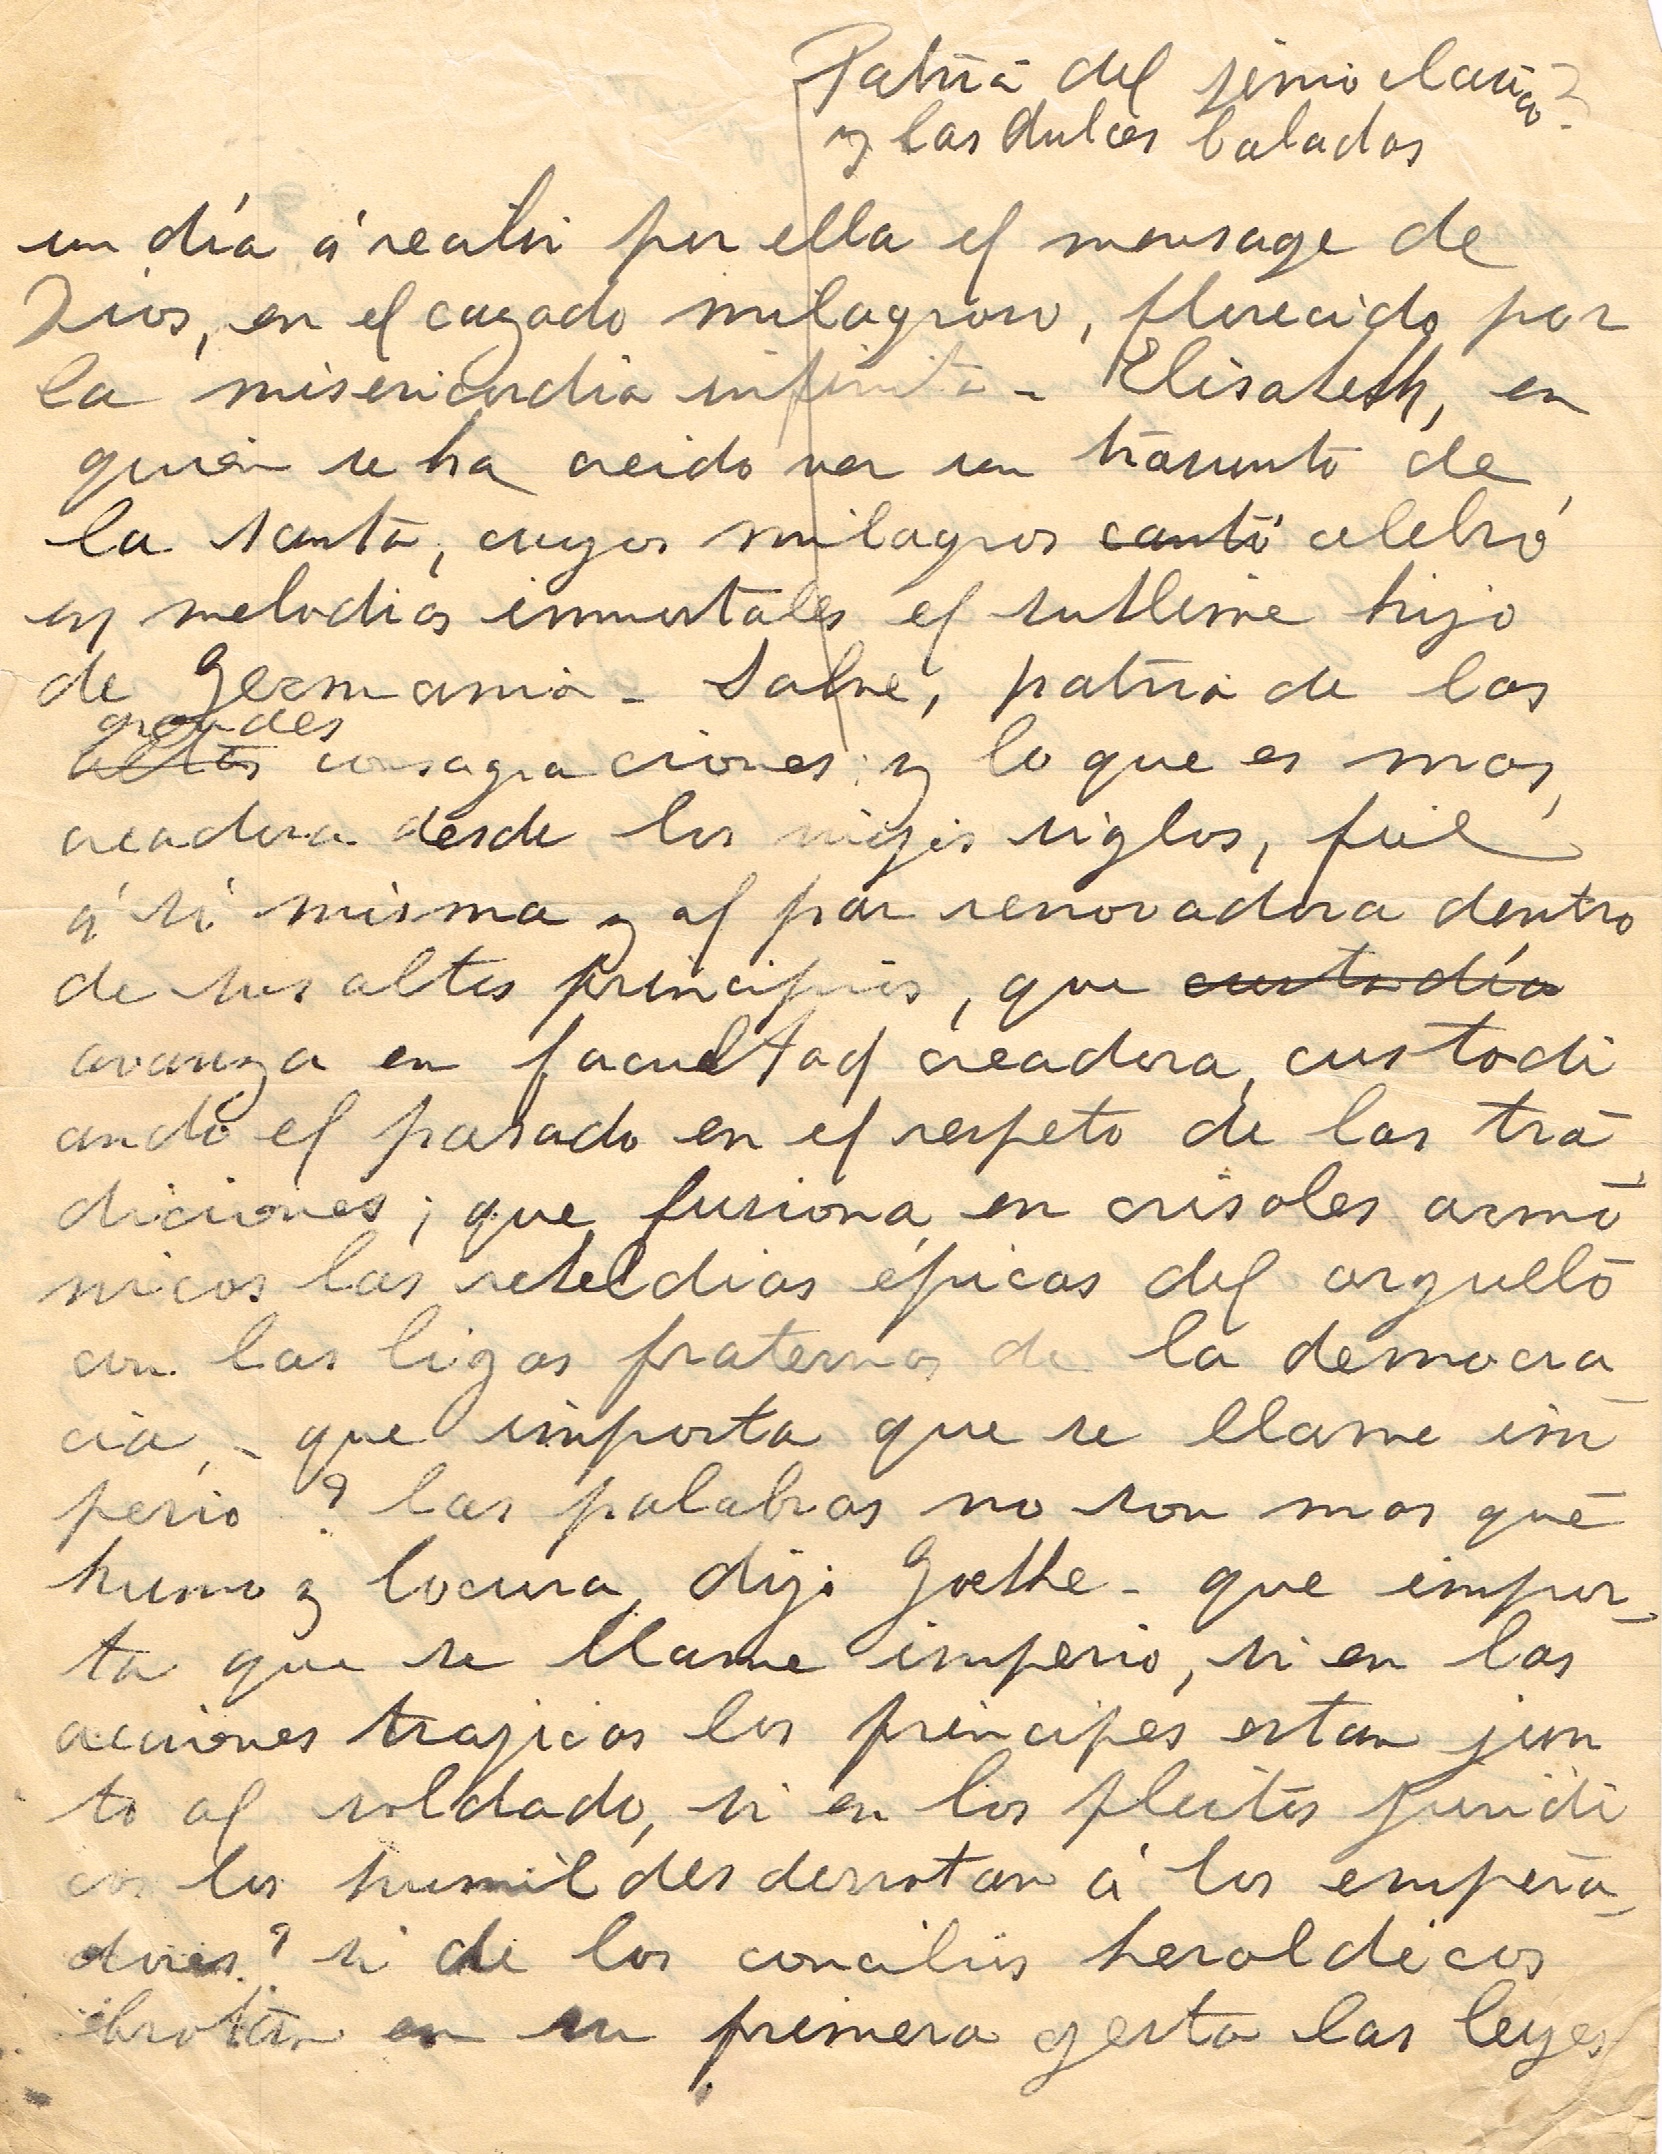 Patria del jenio clasico
y las dulces baladas
un día á recibir por ella el mensage de
Dios, en el cayado milagroso, florecido por
la misericordia infinita - Elisabeth, en
quien se ha creido ver un trasunto de
la santa, cuyos milagros cantó celebró
en melodias inmortales el sublime hijo
de Germania - Salve, patria de las
grandes
altas consagraciones; y lo que es mas,
creadora desde los viejos siglos, fiel
á sí misma y al par renovadora dentro
de sus altos principios, que custodía
avanza en facultad creadora, custodi
ando el pasado en el respeto de las tra
diciones; que fusiona en crisoles armo
nicos las rebeldias épicas del orgullo
con las ligas fraternas de la democra
cia, - que importa que se llame im
perio? las palabras no son mas que
humo y locura, dijo Goethe - que impor_
ta que se llame imperio, si en las
acciones trajicas los principes estan jun
to al soldado, si en los pleitos juridi
cos los humildes derrotan á los empera_
dores? si de los concilios heraldicos
brotan en su primera gesta las leyes